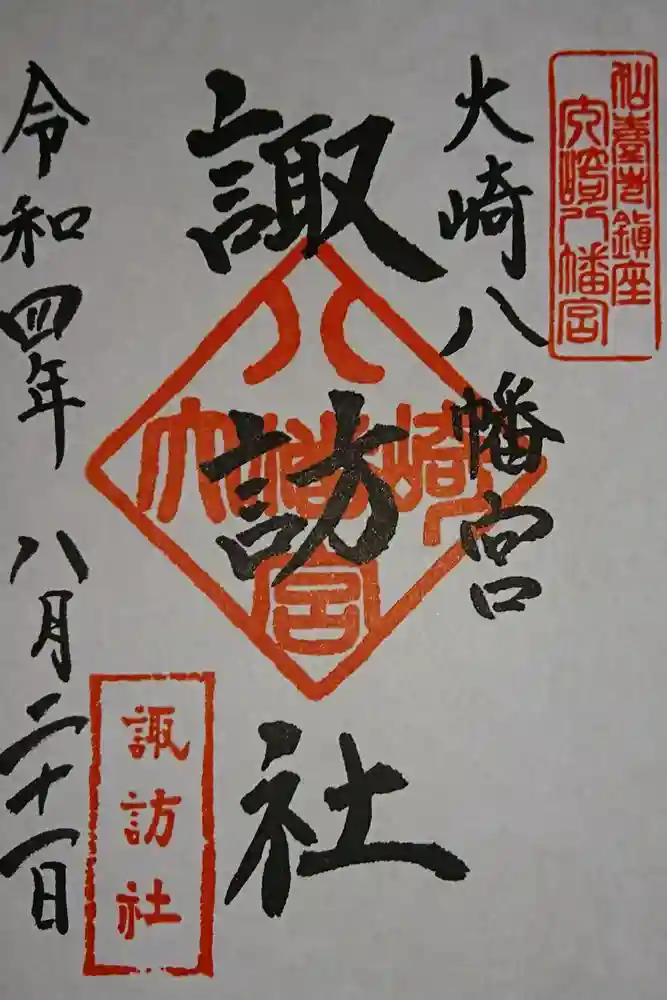 仙臺市鎮座
大崎八幡宮
大崎八幡宮
諏訪社
大崎八幡宮
令和四年 八月二十一日
諏訪社